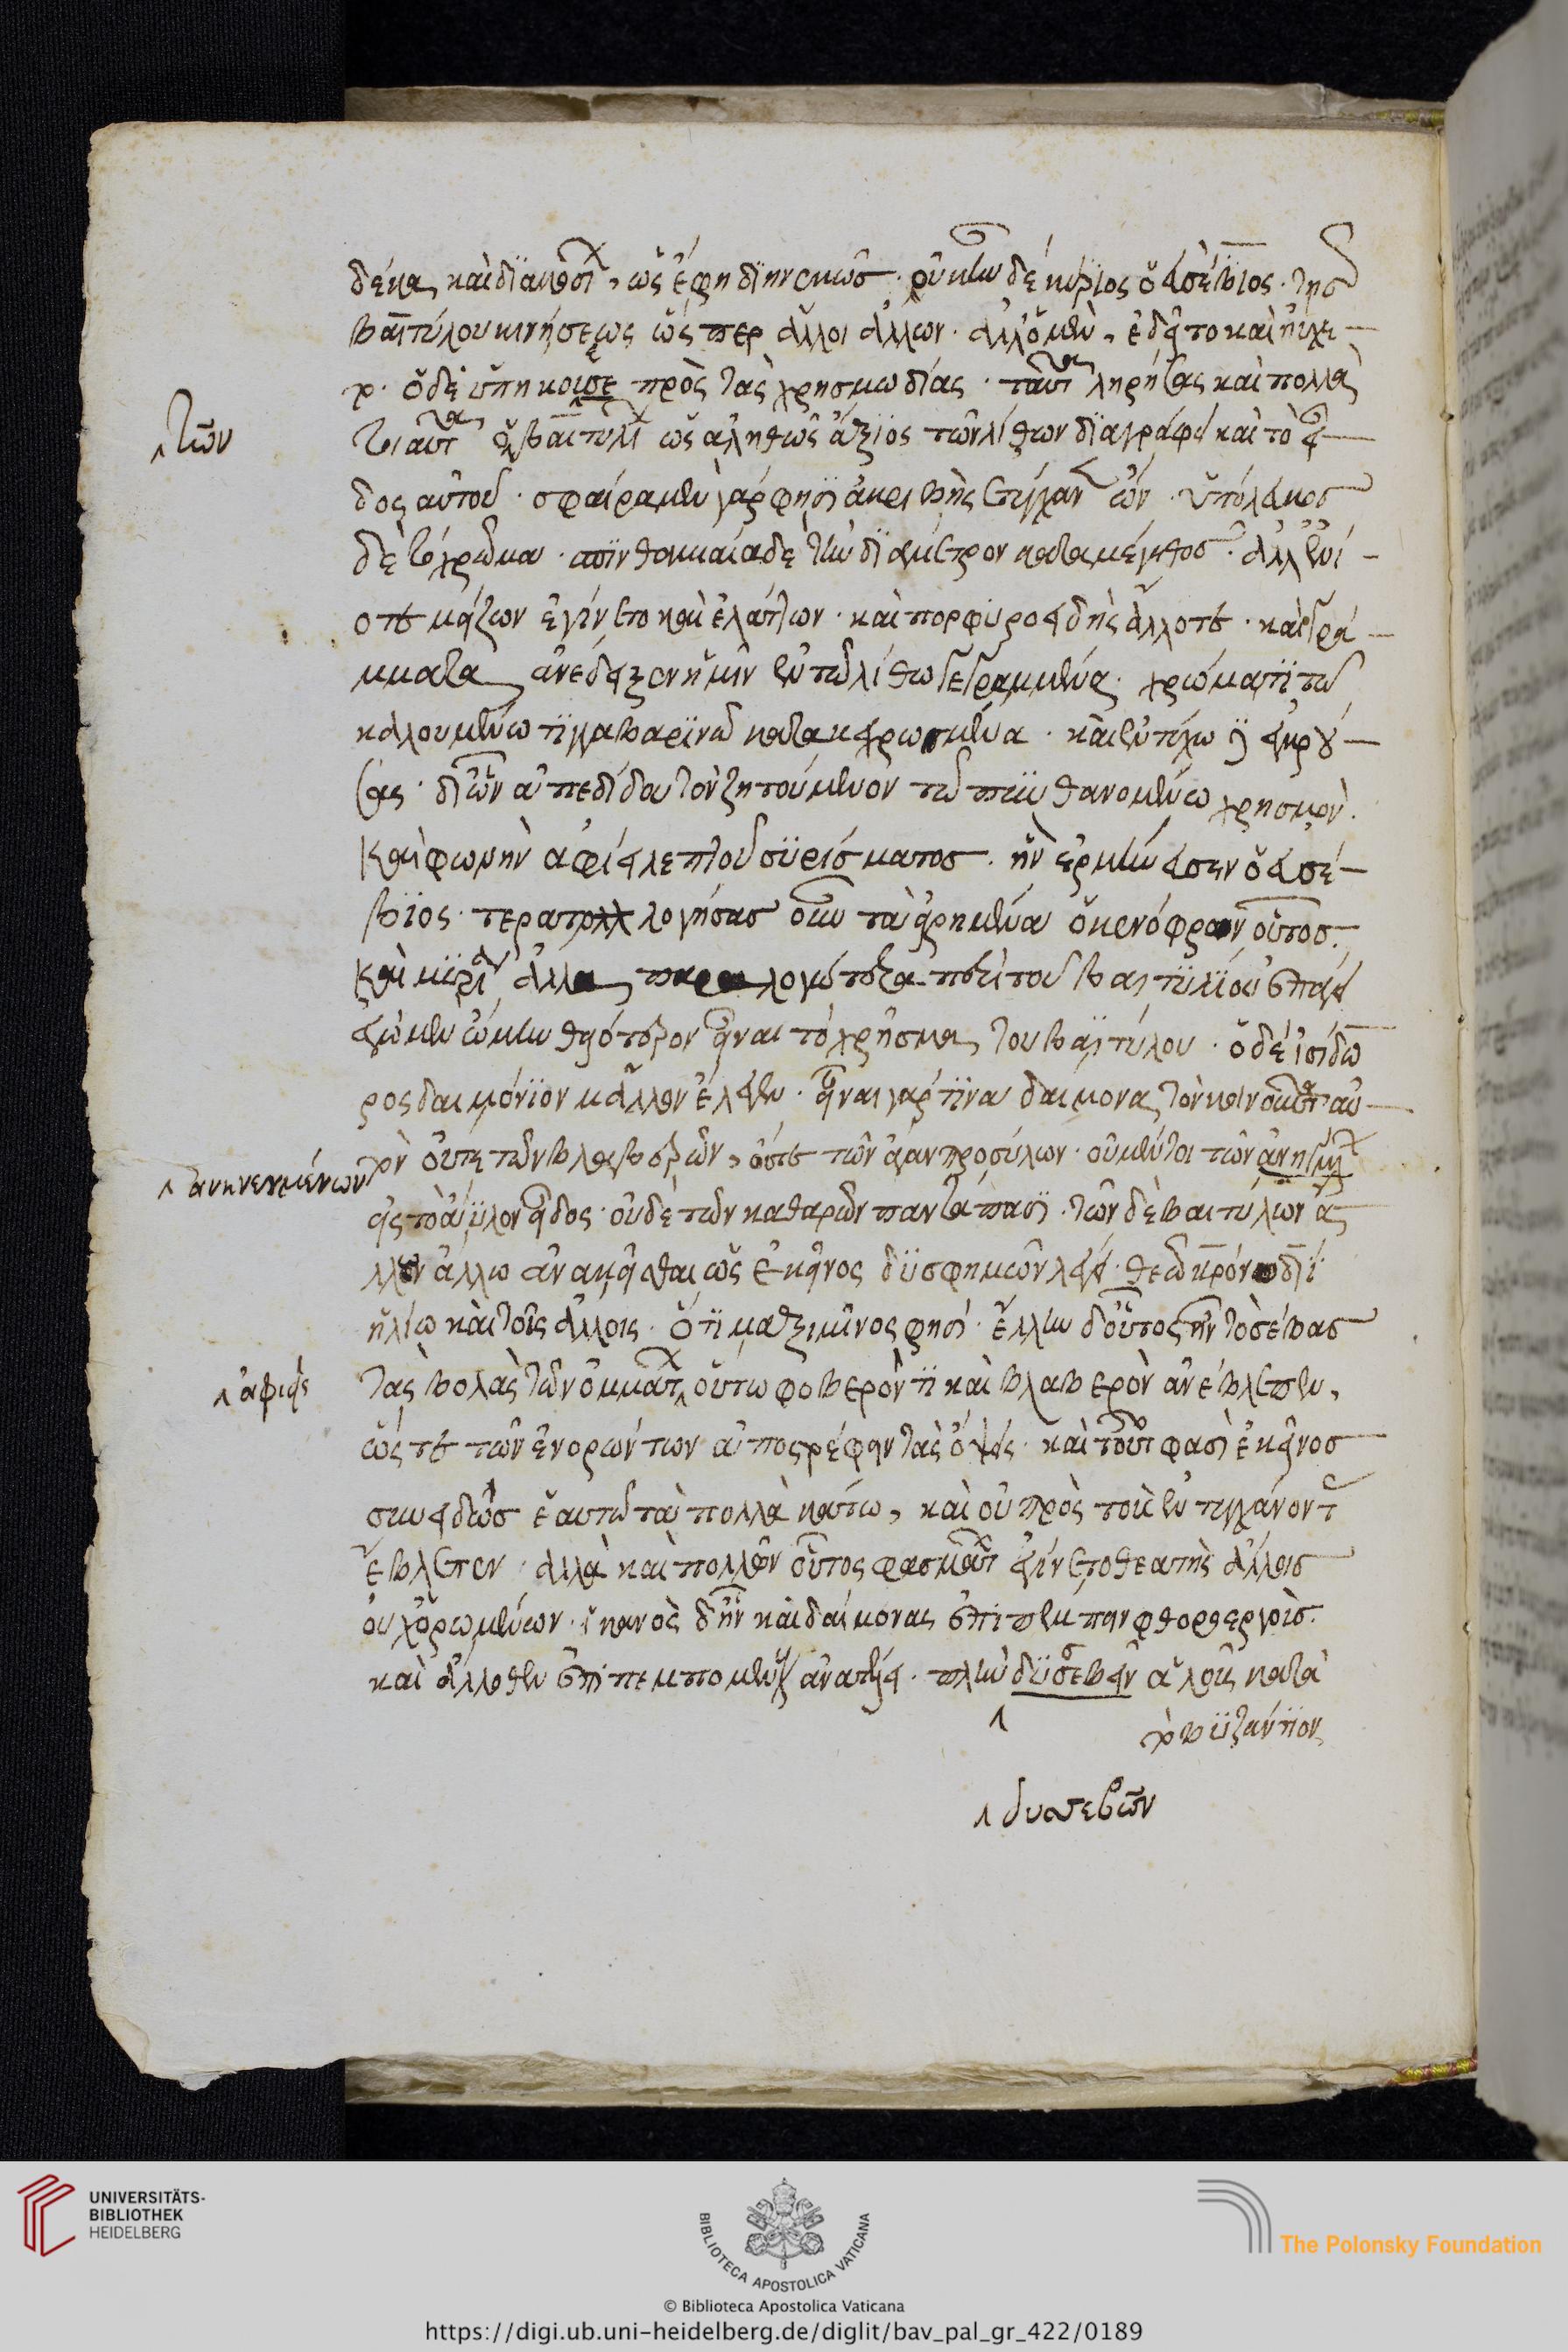 δέκα, καὶ διακοσΐ, ὡς ἔφη διηνυκὼς. οὐκ ἦν δὲ κύριος ὁ εὐσέβιος. τῆς
βαιτύλου κινήσεως ὥς περ ἄλλοι ἄλλων. ἀλλ' ὁ μὲν, ἐδεῖτο καὶ ηὔχε-
το. ὁ δὲ ὑπήκουσε πρὸς τὰς χρησμωδίας. ταῦτα ληρήσας καὶ πολλὰ
τοιαῦτα ὁ βαιτυλί ὡς ἀληθῶς ἄξιος τὸν λίθον διαγράφει καὶ τὸ εἶ-
‸ τῶν
δος αὐτοῦ. σφαῖρα μὲν γάρ φησιν ἀκριβὴς ἐτύγχαν ὤν. ὑπόλευκος
δὲ τὸ χρῶμα. σπιθαμιαία δὲ τὴν διάμετρον κατὰ μέγεθος. ἀλλ' ἐνί-
οτε μείζων ἐγίνετο καὶ ἐλάττων. καὶ πορφυροειδὴς ἄλλοτε. καὶ γρά-
μματα ἀνέδειξεν ἡμῖν ἐν τῷ λίθω γεγραμμένα. χρώματι τῷ
καλουμένω τιγγαβαρίνω κατακεχρωσμένα. καὶ ἐν τείχω ἐγκρού-
σας. δι' ὧν ἀπεδίδου τὸν ζητούμενον τῷ πυνθανομένω χρησμὸν.
καὶ φωνὴν ἀφίει λεπτοῦ συρίσματος. ἣν ἑρμήνευσεν ὁ εὐσέ-
βιος. τερατολογήσας οὖν τὰ εἰρημένα ὁ κενόφρων οὗτος.
καὶ μυρία ἄλλα παραλογώτερα περὶ τοῦ βαιτυλίου ἐπάγει
ἐγὼ μὲν ᾤμην θειότερον εἶναι τὸ χρῆσμα τοῦ βαιτύλου. ὁ δὲ ἰσίδω
ρος δαιμόνιον μᾶλλον ἔλεγεν. εἶναι γάρ τινα δαίμονα τὸν κινοῦντα αὐ-
τὸν οὔτε τῶν βλαβερῶν, οὔτε τῶν ἄγαν προσύλων. οὐ μέντοι τῶν ἀνηγμ
‸ ἀνηνεγμένων
εἰς τὸ ἄϋλον εἶδος. οὐδὲ τῶν καθαρῶν παντάπασι. τῶν δὲ βαιτύλων ἄ-
λλον ἄλλω ἀνακεῖσθαι ὡς ἐκεῖνος δυσφημῶν λέγει. θεῷ κρόνω διΐ
ἡλίω καὶ τοῖς ἄλλοις. ὅτι μαξιμῖνος φησί. ἕλλην δ' οὗτος ἦν τὸ σέβας
τὰς βολὰς τῶν ὀμμάτ ‸ οὕτω φοβερόν τι καὶ βλαβερὸν ἀνέβλεπεν,
‸ ἀφιεὶς
ὥς τε τῶν ἐνορώντων ἀποστρέφειν τὰς ὄψεις. καὶ τοῦτο φασὶ ἐκεῖνος
συνειδὼς ἑαυτῷ τὰ πολλὰ κάτω, καὶ οὐ πρὸς τοὺς ἐντυγχάνοντ
ἔβλεπεν. ἀλλὰ καὶ πολλῶν οὗτος φασμάτ ἐγίνετο θεατὴς ἄλλοις
οὐχ ὁρωμένων. ἱκανὸς δ' ἦν καὶ δαίμονας ἐπιπέμπειν φθοροεργοὺς.
καὶ ἄλλοθεν ἐπιπεμπομέν ἀνατ. πλὴν δυσσεβεῖν ἁλοὺς κατὰ
τὸ βυζάντιον
‸ δυσσεβῶν
UNIVERSITÄTS-
BIBLIOTHEK
HEIDELBERG
BIBLIOTECA APOSTOLICA VATICANA
The Polonsky Foundation
© Biblioteca Apostolica Vaticana
https://digi.ub.uni-heidelberg.de/diglit/bav_pal_gr_422/0189